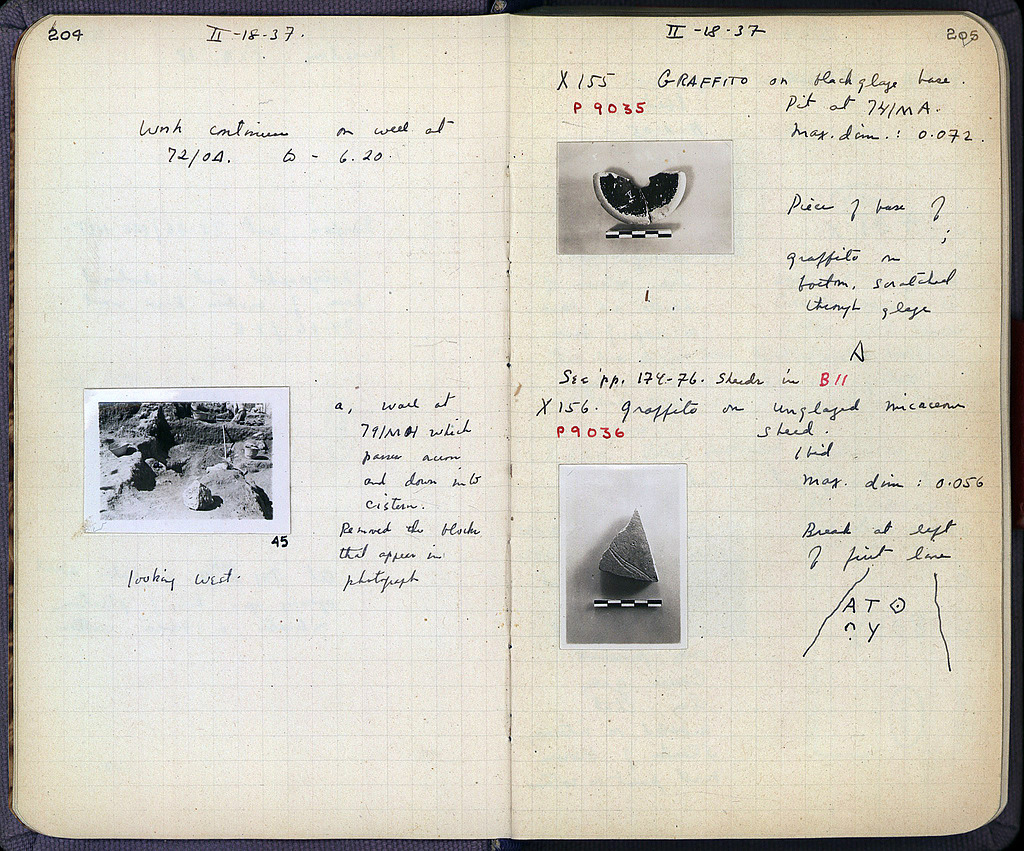 204
II-18-37.
Work continues on well at
72/ΟΔ. to - 6.20.
a, wall at
79/ΜΗ which
passes across
and down into
cistern.
Removed the blocks
that appear in
photograph
45
looking west.
II-18-37
205
X 155 GRAFFITO on black glaze base.
P 9035
Pit at 74/ΜΑ.
Max. dim.: 0.072.
Piece of base of
;
graffito on
bottom, scratched
through glaze
A
See pp. 174-76. Sherds in B11
X 156. graffito on unglazed micaceous
P 9036
sherd.
Ibid
Max. dim: 0.056
Break at left
of first line
A T ⊙
Υ